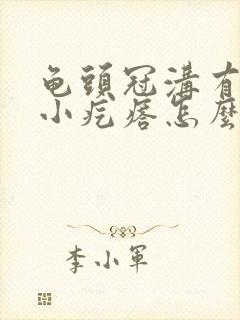 龟頭冠溝有
小疙瘩怎麼
李小軍